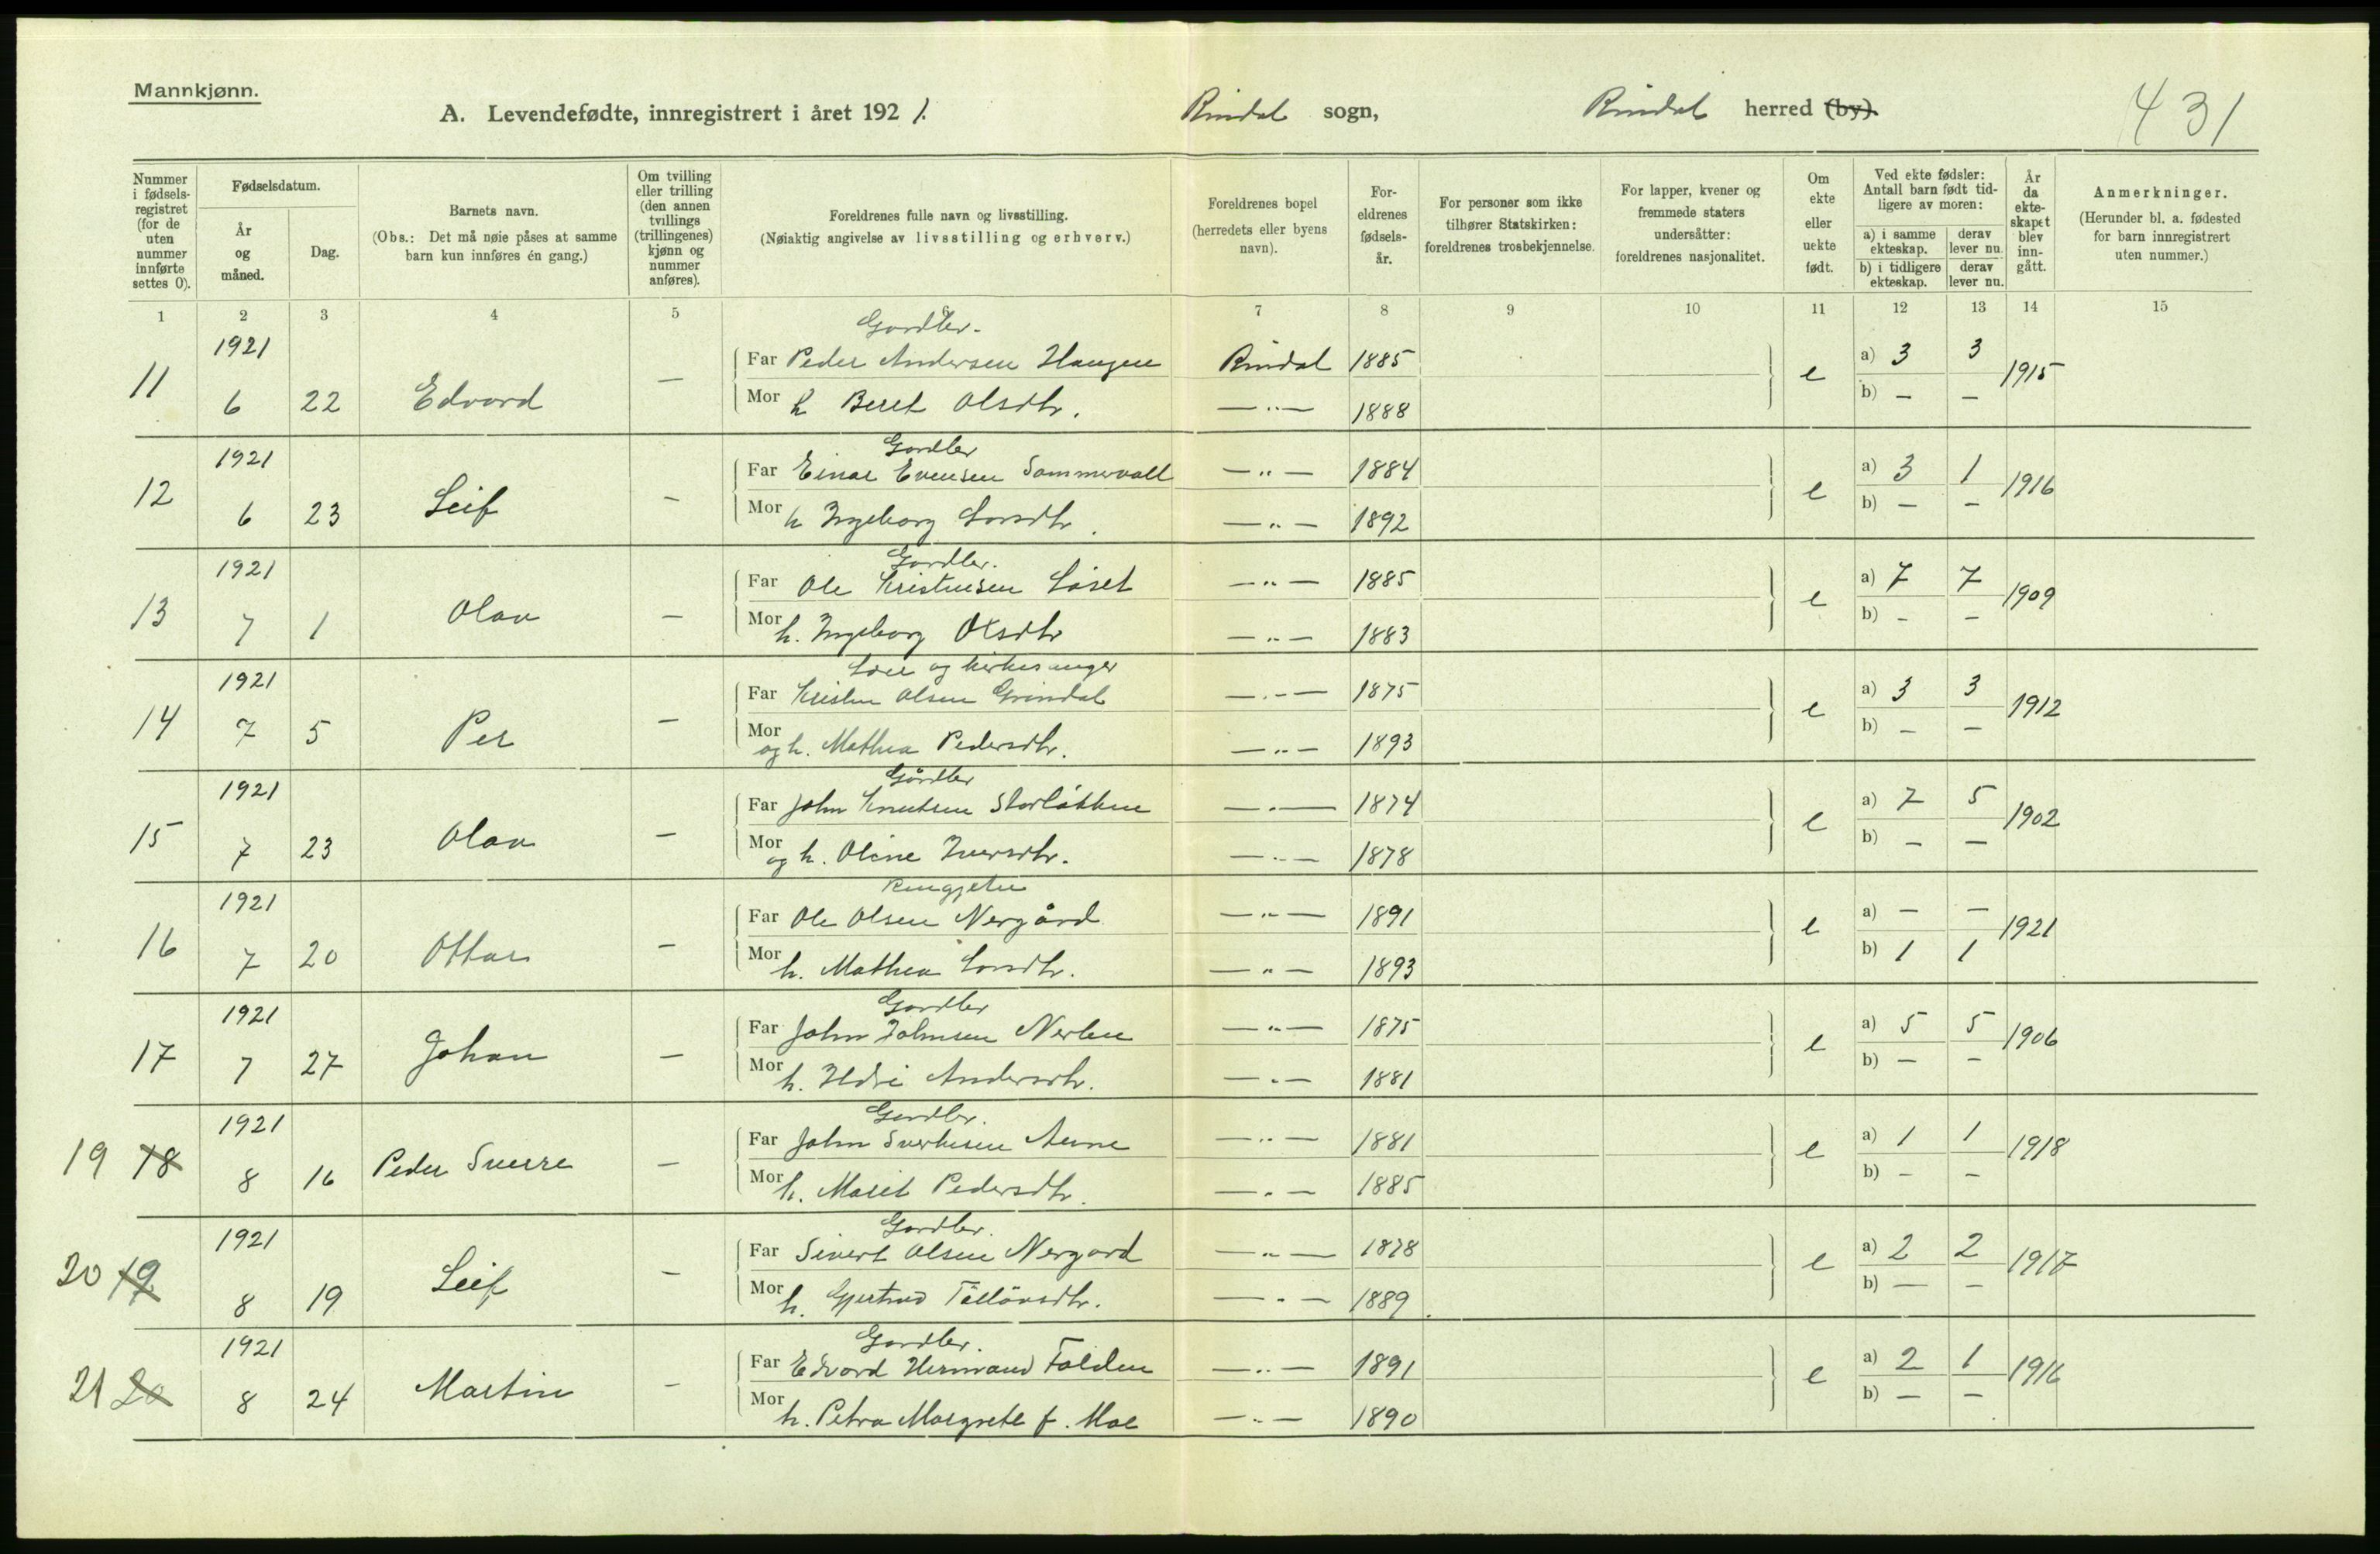 Mannkjønn.
A. Levendefødte, innregistrert i året 1921. Rindal sogn, Rindal herred (by). 431
Nummer i fødsels-registret (for de uten nummer innførte settes 0).
Fødselsdatum.
År og måned.
Dag.
Barnets navn.
(Obs.: Det må nøie påses at samme barn kun innføres én gang.)
Om tvilling eller trilling (den annen tvillings (trillingenes) kjønn og nummer anføres).
Foreldrenes fulle navn og livsstilling.
(Nøiaktig angivelse av livsstilling og erhverv.)
Foreldrenes bopel
(herredets eller byens navn).
For-eldrenes fødsels-år.
For personer som ikke tilhører Statskirken: foreldrenes trosbekjennelse.
For lapper, kvener og fremmede staters undersåtter: foreldrenes nasjonalitet.
Om ekte eller uekte født.
Ved ekte fødsler: Antall barn født tid-ligere av moren:
a) i samme ekteskap.
derav lever nu.
b) i tidligere ekteskap.
derav lever nu.
År da ekte-skapet blev inn-gått.
Anmerkninger.
(Herunder bl. a. fødested for barn innregistrert uten nummer.)
1 2 3 4 5 6 7 8 9 10 11 12 13 14 15
Gardbr.
1921 Far Peder Andersen Haugen Rindal 1885 a) 3 3
11 6 22 Edvard — Mor h Beret Olsdtr. —„— 1888 e b) — — 1915
Gardbr
1921 Far Einar Evensen Sommervoll —„— 1884 a) 3 1
12 6 23 Leif — Mor h Ingeborg Larsdtr. —„— 1892 e b) — — 1916
Gardbr.
1921 Far Ole Kristensen Løset —„— 1885 a) 7 7
13 7 1 Olav — Mor h. Ingeborg Olsdtr —„— 1883 e b) — — 1909
Lærer og kirkesanger
1921 Far Kristen Olsen Grindal —„— 1875 a) 3 3
14 7 5 Per — Mor og h. Mathea Pedersdtr. —„— 1893 e b) — — 1912
Gårdbr
1921 Far John Knutsen Storløkken —„— 1874 a) 7 5
15 7 23 Olav — Mor og h. Oline Iversdtr. —„— 1878 e b) — — 1902
1921 Far Ole Olsen Nergård —„— 1891 a) — —
16 7 20 Ottar — Mor h. Mathea Larsdtr. —„— 1893 e b) 1 1 1921
Gardbr
1921 Far John Johnsen Nerlien —„— 1875 a) 5 5
17 7 27 Johan — Mor h. Ildri Andersdtr. —„— 1881 e b) — — 1906
Gardbr.
1921 Far John Sverkesen Aune —„— 1881 a) 1 1
19 18 8 16 Peder Sverre — Mor h. Marit Pedersdtr. —„— 1885 e b) — — 1918
Gardbr.
1921 Far Sivert Olsen Nergard —„— 1878 a) 2 2
20 19 8 19 Leif — Mor h. Gjertrud Tølløvsdtr. —„— 1889 e b) — — 1917
Gardbr.
1921 Far Edvard Hermand Folden —„— 1891 a) 2 1
21 20 8 24 Martin — Mor h. Petra Margrete f. Moe —„— 1890 e b) — — 1916